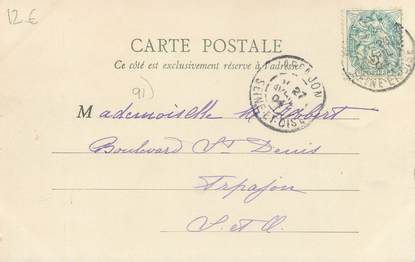 12.€
CARTE POSTALE
Ce côté est exclusivement réservé à l'adresse
91)
Mademoiselle
Boulevard St Denis
Arpajon
S. et O.
ARPAJON
27
AVRIL
04
SEINE-ET-OISE
SEINE-ET-OISE